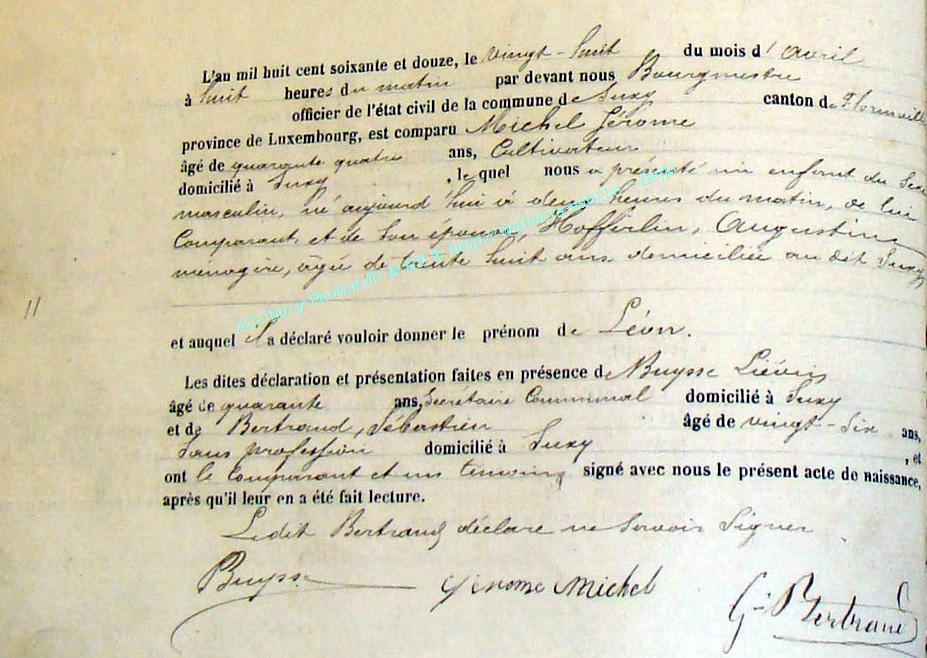 L'an mil huit cent soixante et douze, le vingt-huit du mois d'avril
à huit heures du matin par devant nous Bourgmestre
officier de l'état civil de la commune de Suxy canton de Florenville
province de Luxembourg, est comparu Michel Jérome
âgé de quarante quatre ans, Cultivateur
domicilié à Suxy, lequel nous a présenté un enfant du Sexe
masculin, né aujourd'hui à deux heures du matin, de lui
Comparant, et de son épouse, Hofferlin, Augustine
ménagère, âgée de trente huit ans domiciliée au dit Suxy
11
et auquel il a déclaré vouloir donner le prénom de Léon.
Les dites déclaration et présentation faites en présence de Buysse Liévin
âgé de quarante ans, Secrétaire Communal domicilié à Suxy
et de Bertrand, Sébastien âgé de vingt-six ans,
Sans profession domicilié à Suxy, et
ont le Comparant et un témoing signé avec nous le présent acte de naissance,
après qu'il leur en a été fait lecture.
Ledit Bertrand déclare ne Savoir Signer
Buysse Jérome Michel G. Bertrand